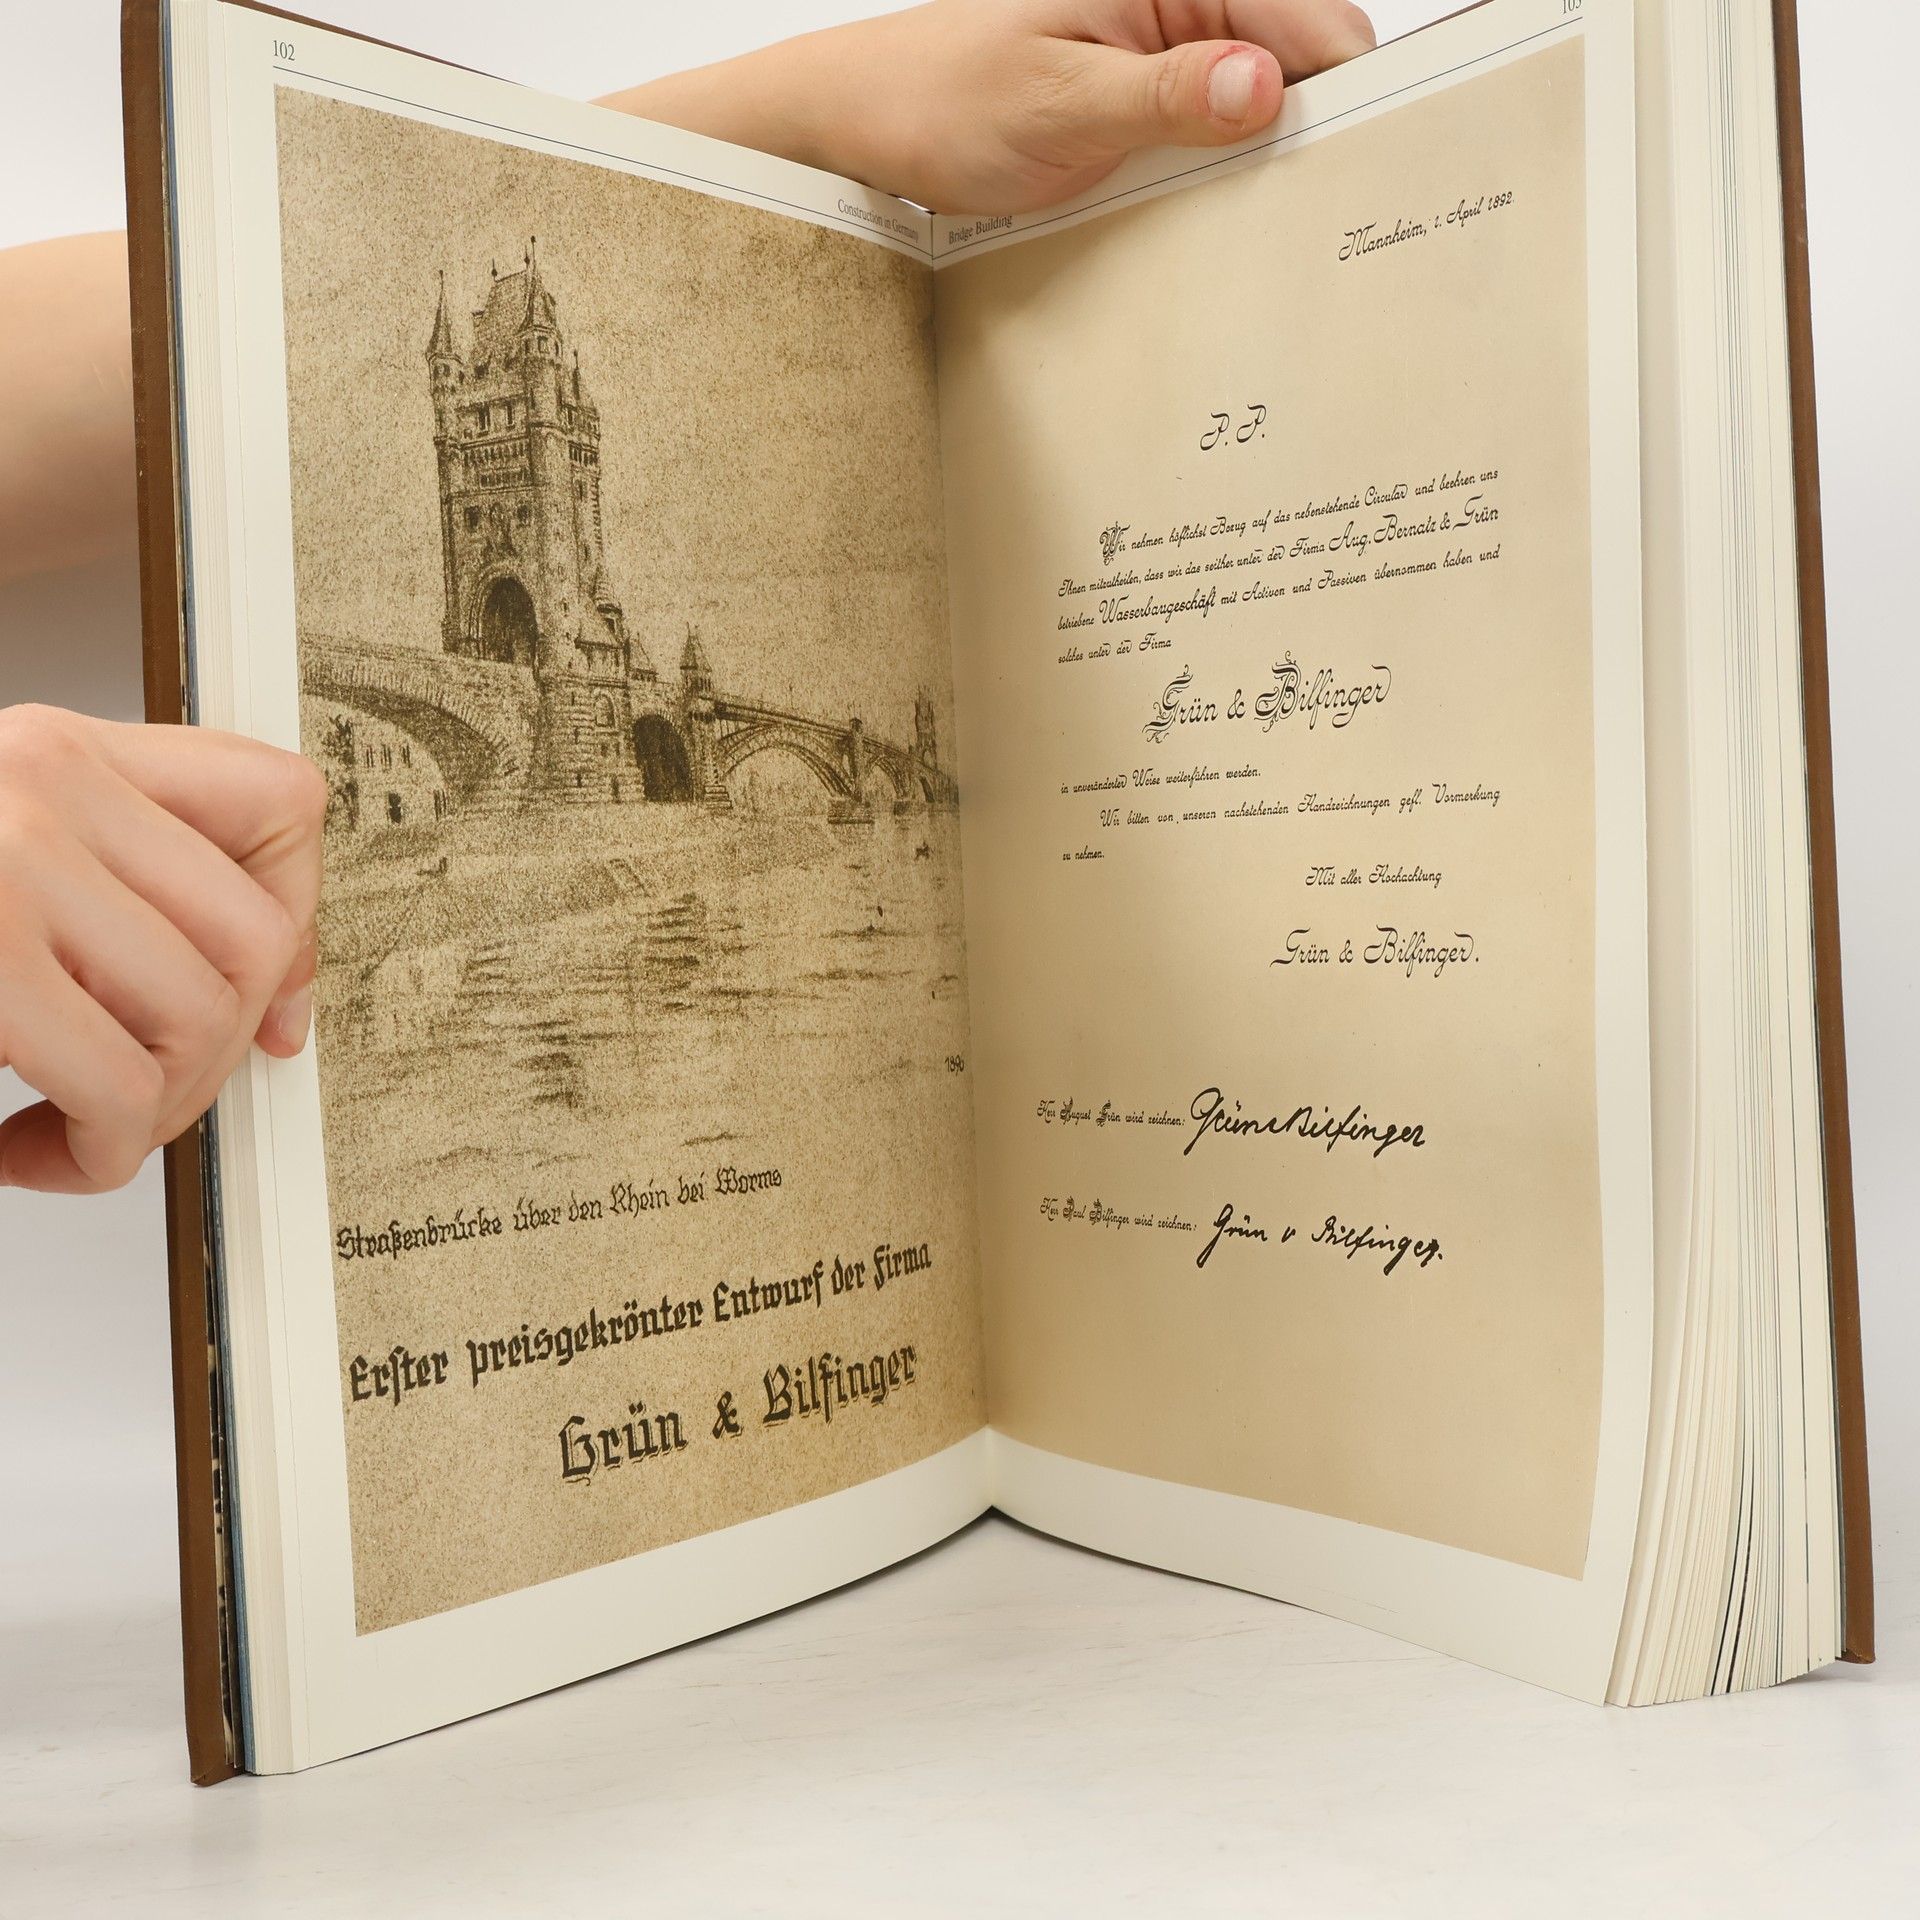 102
Construction in Germany
1890
Straßenbrücke über den Rhein bei Worms
Erster preisgekrönter Entwurf der Firma
Grün & Bilfinger
103
Bridge Building
Mannheim, 1. April 1892.
P. P.
Wir nehmen höflichst Bezug auf das nebenstehende Circular und beehren uns
Ihnen mitzutheilen, dass wir das seither unter der Firma Aug. Bernatz & Grün
betriebene Wasserbaugeschäft mit Activen und Passiven übernommen haben und
solches unter der Firma
Grün & Bilfinger
in unveränderter Weise weiterführen werden.
Wir bitten von unseren nachstehenden Handzeichnungen gefl. Vormerkung
zu nehmen.
Mit aller Hochachtung
Grün & Bilfinger.
Herr August Grün wird zeichnen: Grün & Bilfinger
Herr Paul Bilfinger wird zeichnen: Grün & Bilfinger.